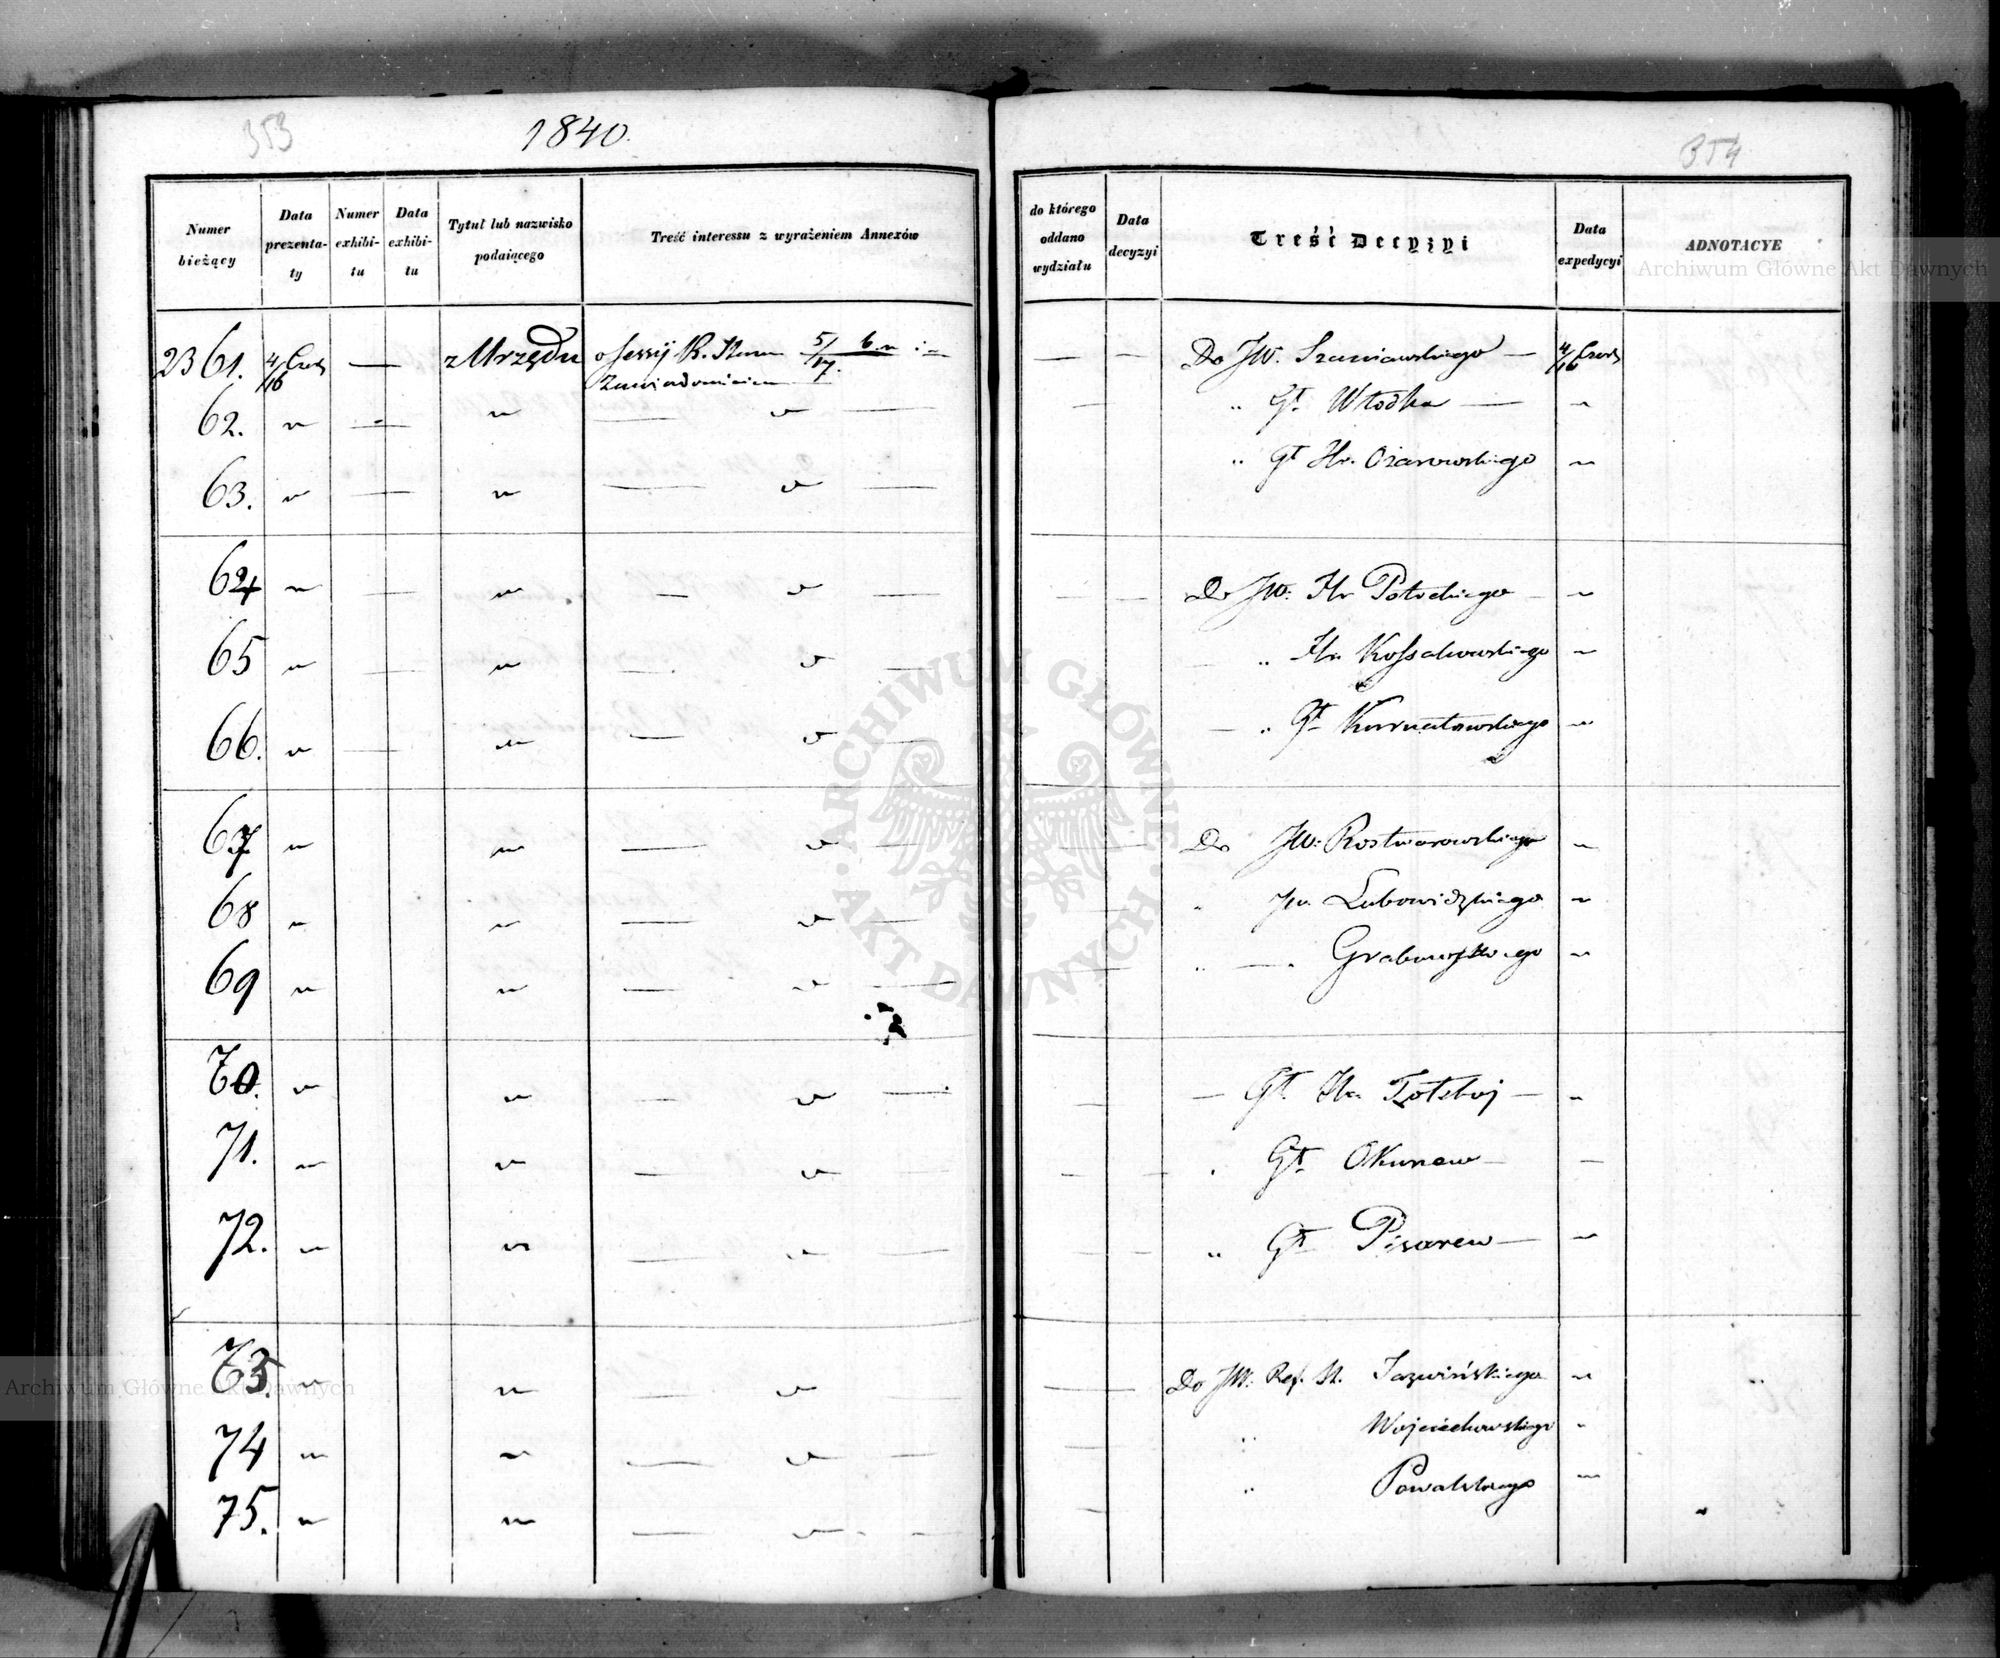 353
1840.
354
Numer bieżący
Data prezenta-ty
Numer exhibi-tu
Data exhibi-tu
Tytuł lub nazwisko podaiącego
Treść interessu z wyrażeniem Annexów
do którego oddano wydziału
Data decyzyi
Treść Decyzyi
Data expedycyi
ADNOTACYE
2361. 4/16 Czer — z Urzędu o Sessyi R. Stanu 5/17. b. m. — — Do JW. Szaniawskiego — 4/16 Czer
Zawiadomienie
62. " — " — " — — " Gł Włodka — "
63. " — " — " — " Gł Hr. Ożarowskiego "
64 " — " — " — — — Do JW. Hr Potockiego — "
65 " — " — " — — " Hr Kossakowskiego "
66. " — " — " — — " Gł Kurnatowskiego "
67 " " — " — — — Do JW. Rostworowskiego "
68 " " — " — — — " JW. Lubowidzkiego "
69 " " — " — — — " — Grabowskiego "
70. " " — " — — — Gł Hr Tołstoj — "
71. " " — " — — Gł Okunew — —
72. " " — " — — — " Gł Pisarew — "
73. " " — " — — Do JW. Ref. St. Jaźwińskiego "
74 " " — " — — " Wojciechowskiego "
75. " " — " — — " Powalskiego "
Archiwum Główne Akt Dawnych
ARCHIWUM GŁÓWNE · AKT DAWNYCH ·
Archiwum Główne Akt Dawnych